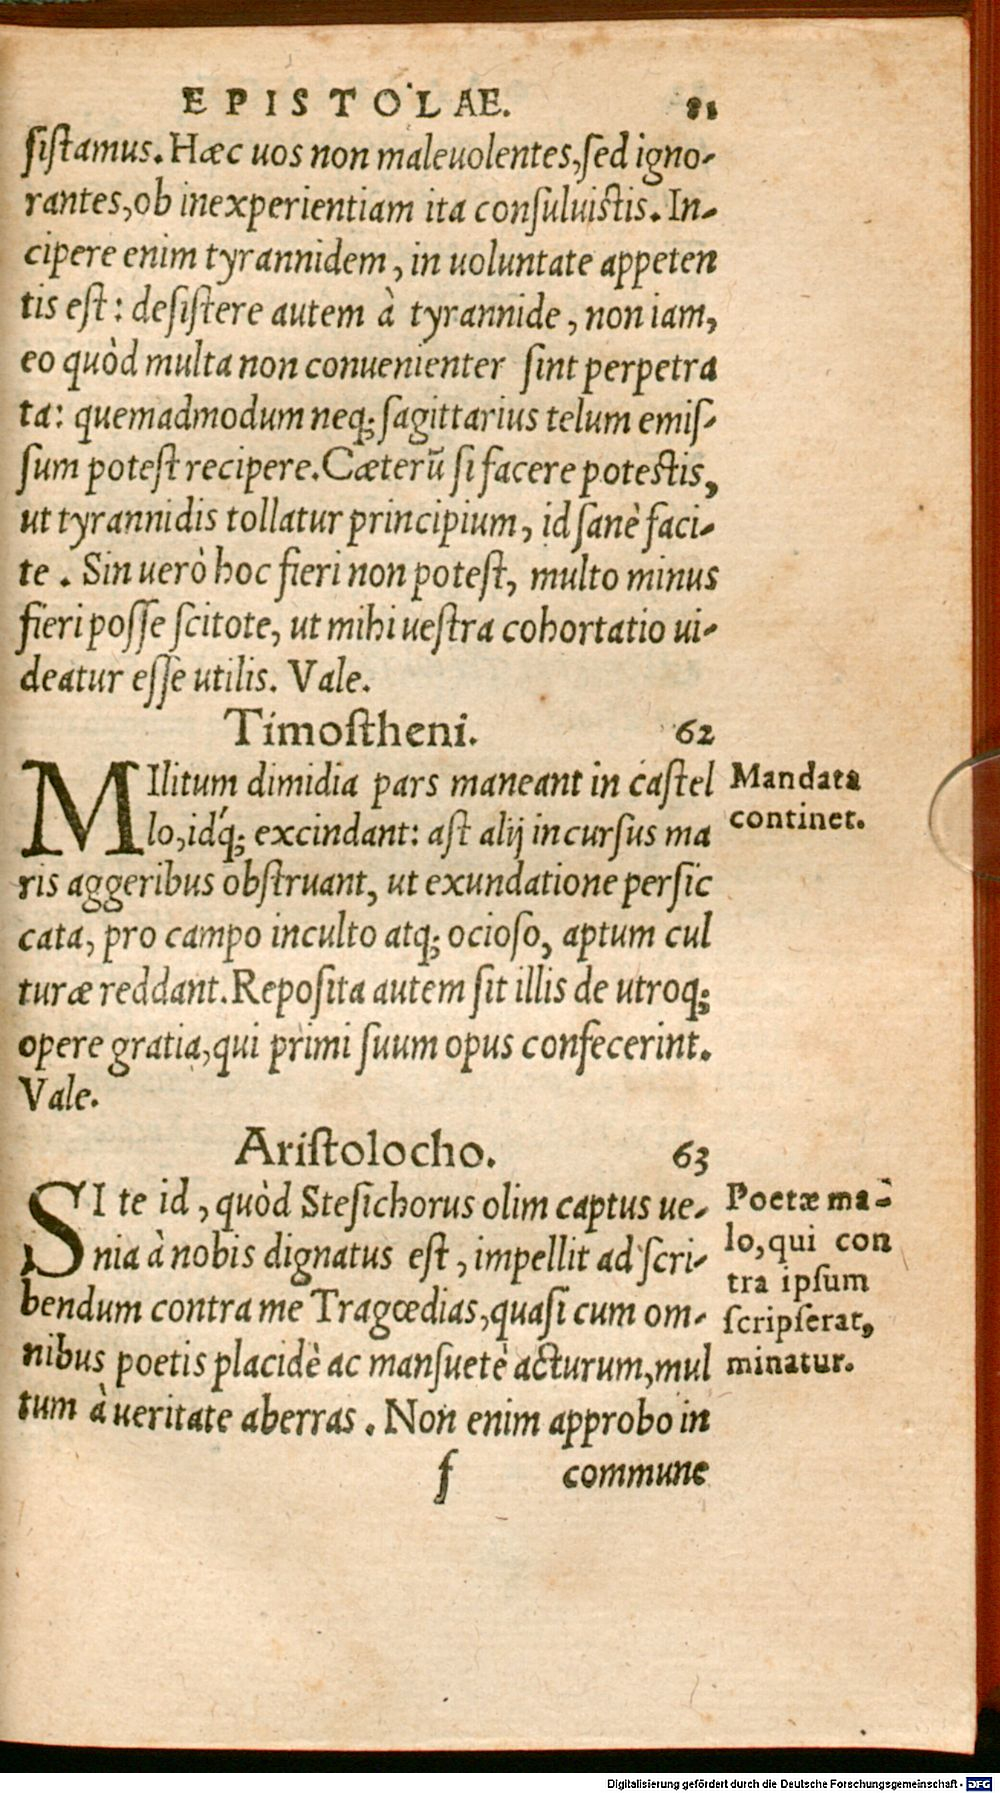 EPISTOLAE. 81
ſiſtamus. Hæc uos non maleuolentes, ſed igno-
rantes, ob inexperientiam ita conſuluiſtis. In-
cipere enim tyrannidem, in uoluntate appeten
tis eſt: deſiſtere autem à tyrannide, non iam,
eo quòd multa non conuenienter ſint perpetra
ta: quemadmodum neq; ſagittarius telum emiſ-
ſum poteſt recipere. Cæterũ ſi facere poteſtis,
ut tyrannidis tollatur principium, id ſanè faci-
te. Sin uerò hoc fieri non poteſt, multo minus
fieri poſſe ſcitote, ut mihi ueſtra cohortatio ui-
deatur eſſe utilis. Vale.
Timoſtheni. 62
MIlitum dimidia pars maneant in caſtel
lo, idq́; excindant: aſt alij incurſus ma
ris aggeribus obſtruant, ut exundatione perſic
cata, pro campo inculto atq; ocioſo, aptum cul
turæ reddant. Repoſita autem ſit illis de utroq;
opere gratia, qui primi ſuum opus confecerint.
Vale.
Mandata
continet.
Ariſtolocho. 63
SI te id, quòd Steſichorus olim captus ue-
nia à nobis dignatus eſt, impellit ad ſcri-
bendum contra me Tragœdias, quaſi cum om-
nibus poetis placidè ac manſuetè acturum, mul
tum à ueritate aberras. Non enim approbo in
Poetæ ma-
lo, qui con
tra ipſum
ſcripſerat,
minatur.
f commune
Digitalisierung gefördert durch die Deutsche Forschungsgemeinschaft - DFG